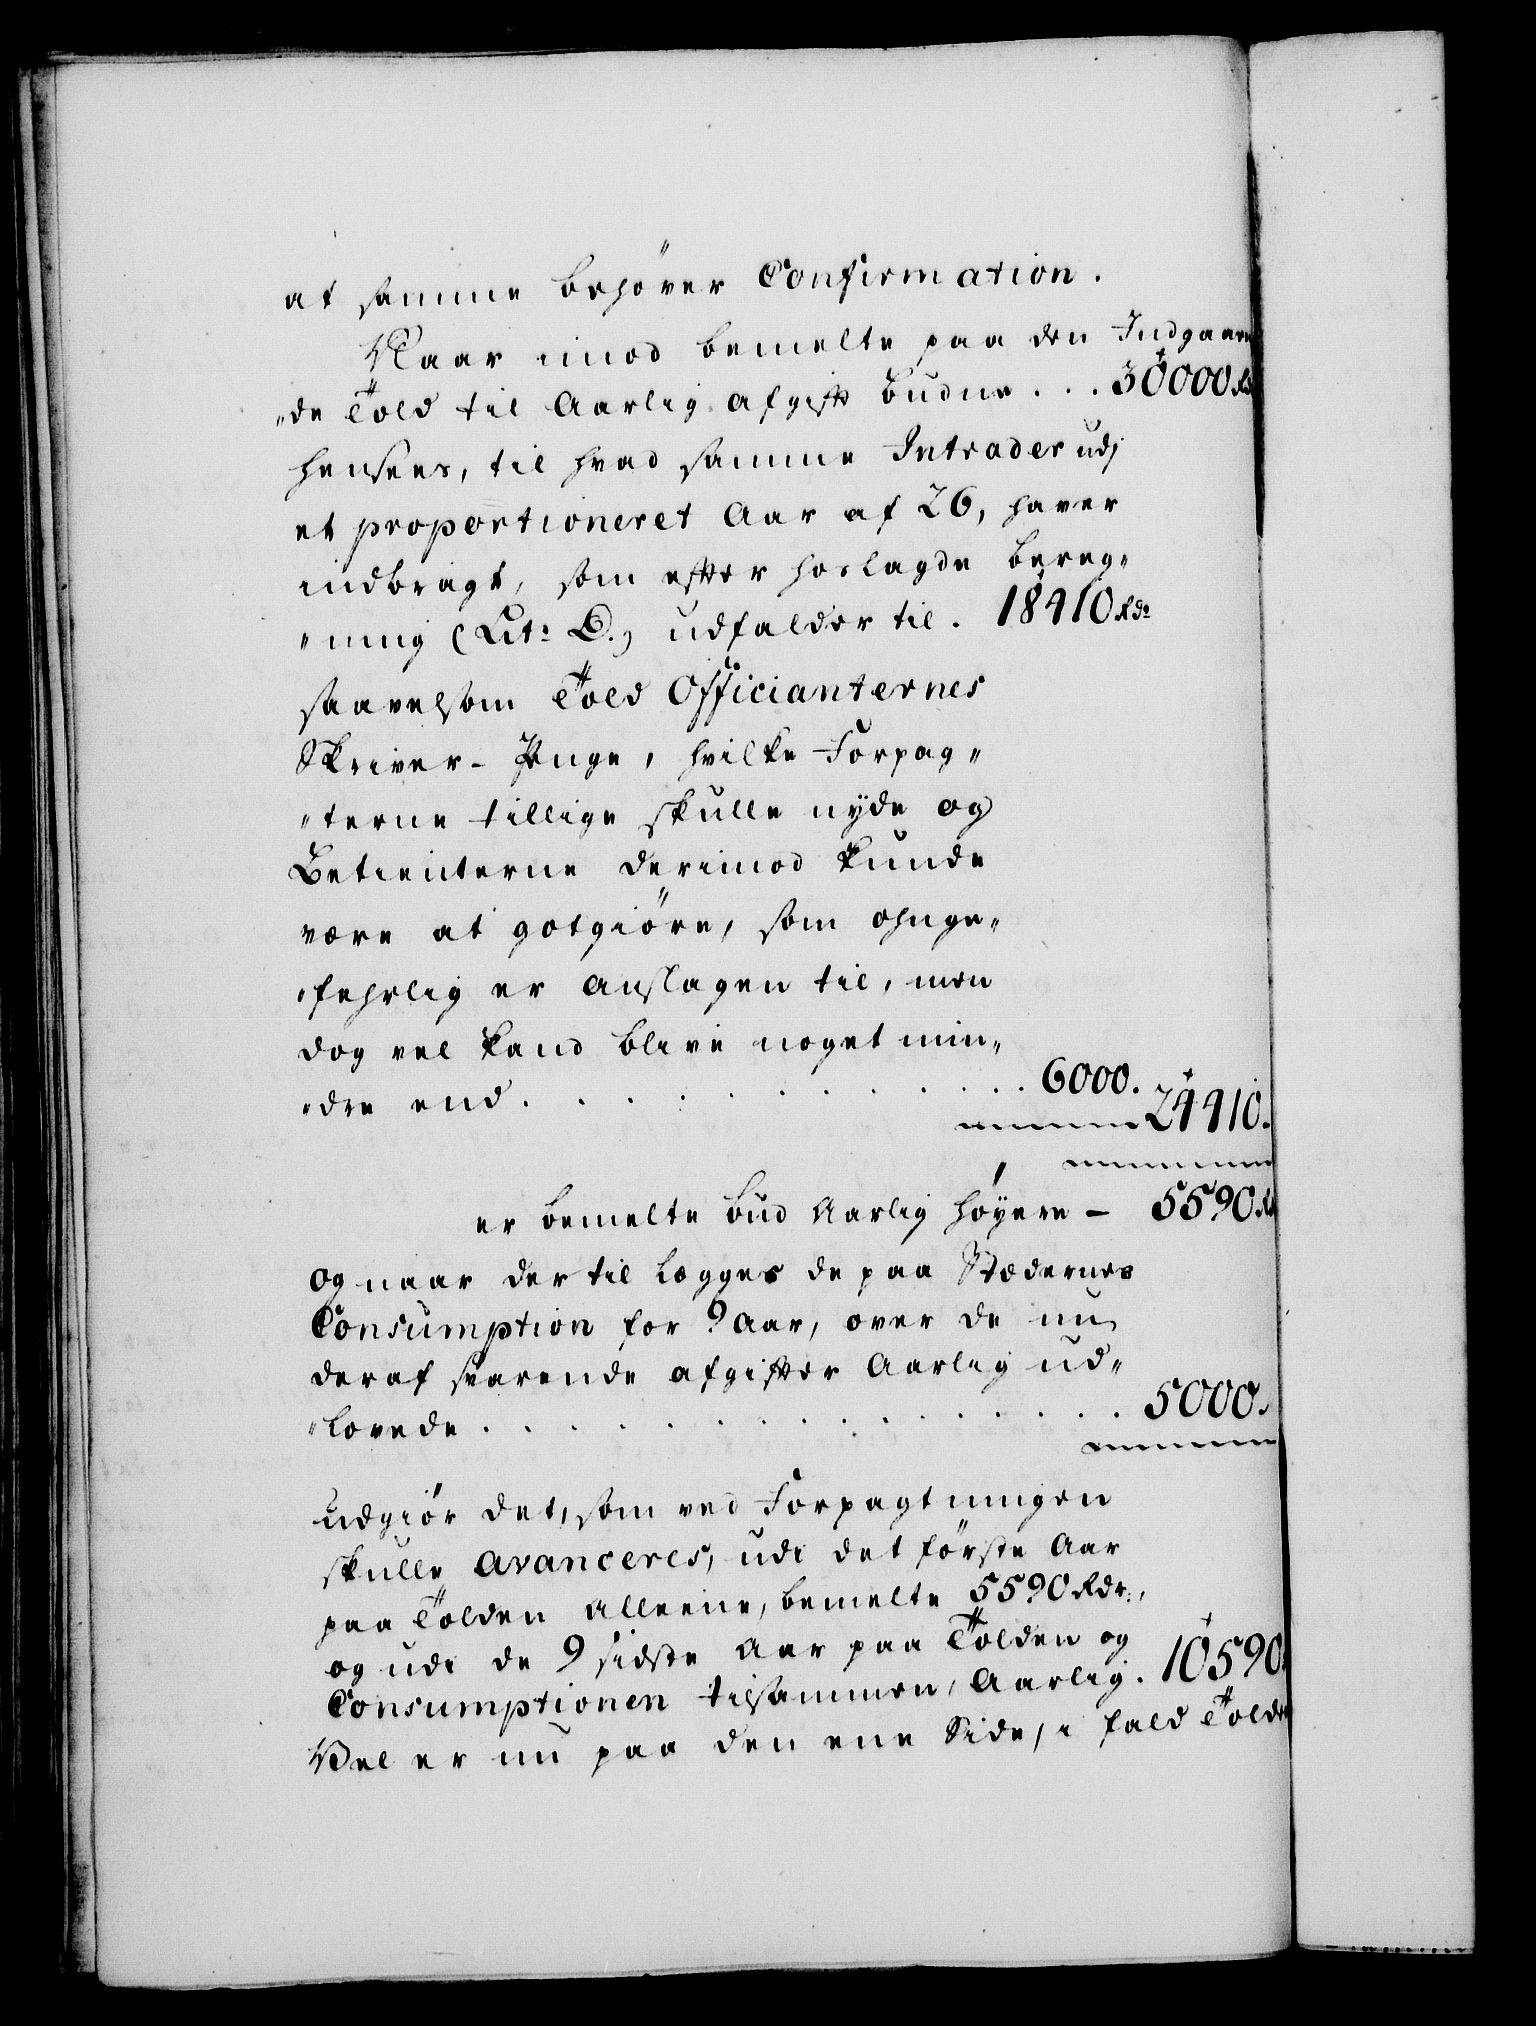 at samme behöver Confirmation.
Naar imod bemelte paa den Indgaaen
„de Told til Aarlig Afgift budne . . . 30000 Rd
hensees, til hvad samme Intrader udj
et proportioneret Aar af 26, haver
indbragt, som efter hoslagde bereg„
„ning (Lit: D.) udfalder til . 18410 Rdr
saavelsom Told Officianternes
Skriver-Penge, hvilke Forpag„
„terne tillige skulle nyde og
Betienterne derimod kunde
være at gotgiöre, som ohnge„
„fehrlig er anslagen til, men
dog vel kand blive noget min„
„dre end . . . . . . . . . . 6000.
24410.
er bemelte bud Aarlig höyere — 5590 Rd
og naar der til Lægges de paa Stædernes
Consumption for 9 Aar, over de nu
deraf svarende afgifter Aarlig ud„
„lovede . . . . . . . . . . . 5000.
Udgiör det, som ved Forpagtningen
skulle avanceres, udi det förste Aar
paa Tolden alleene, bemelte 5590 Rdr.,
og udi de 9 sidste Aar paa Tolden og
Consumptionen tilsammen, Aarlig . 10590.
Vel er nu paa den ene Side, i fald Tolde